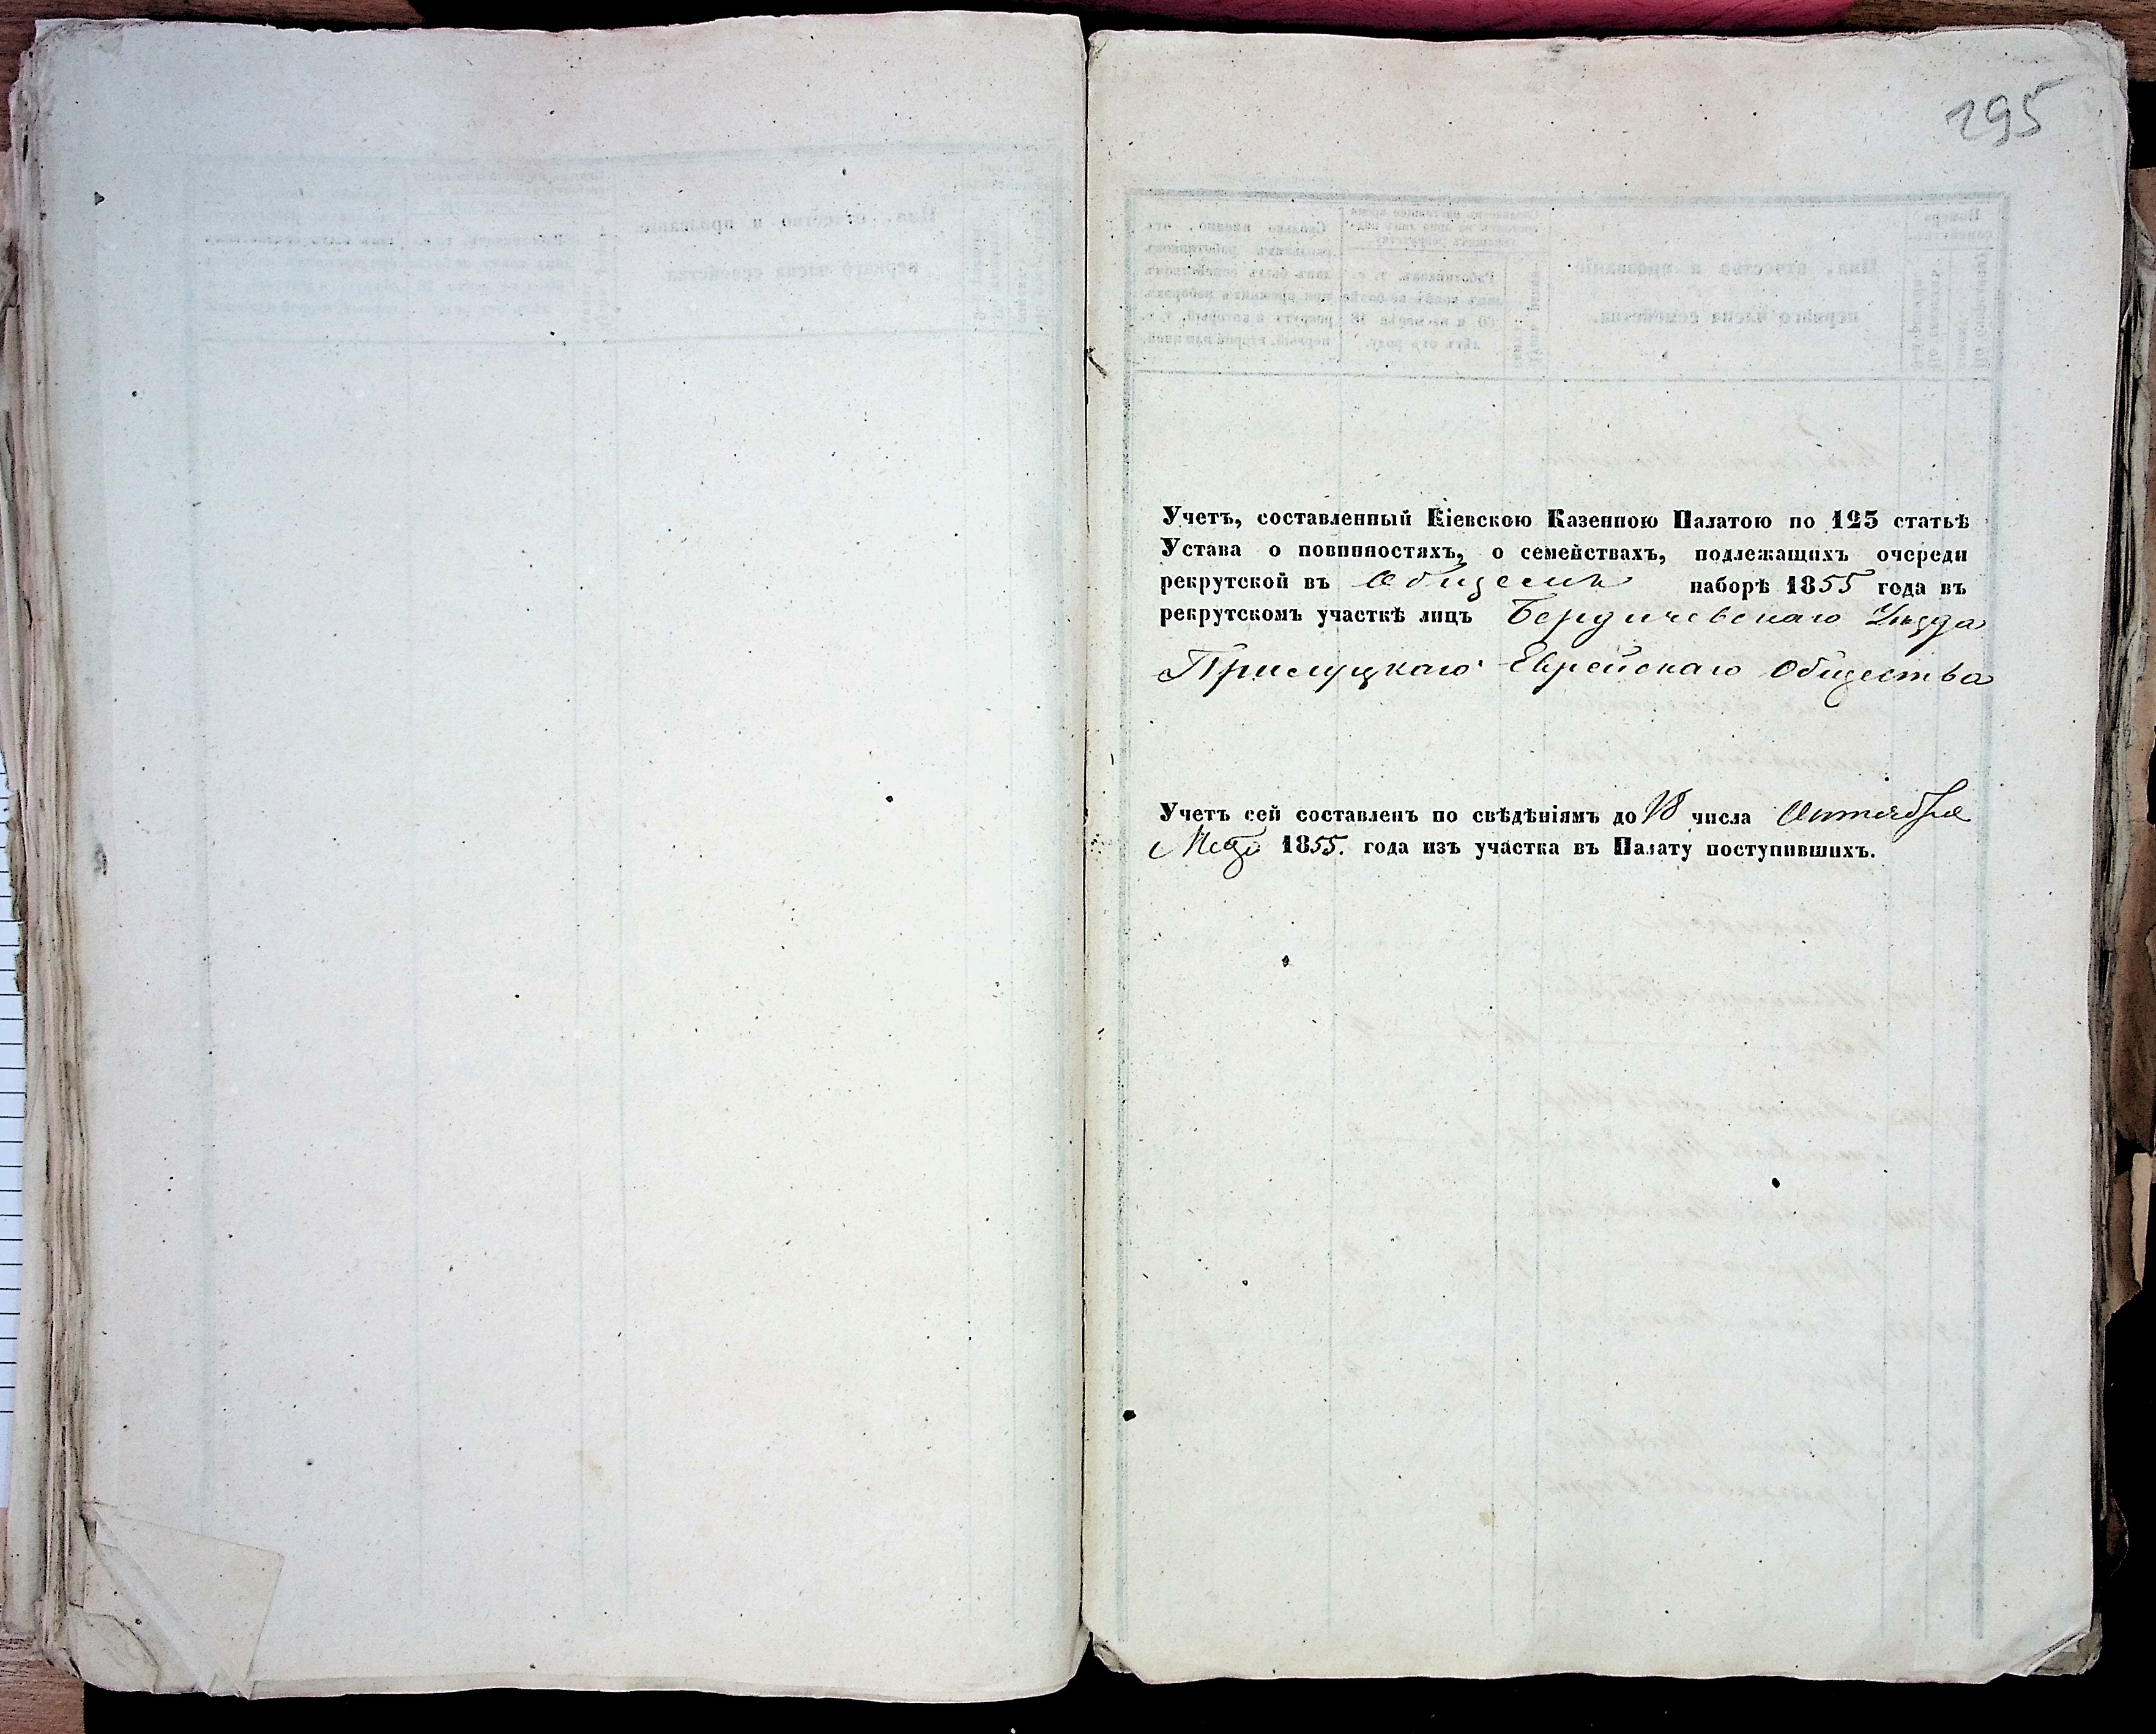 295
Учетъ, составленный Кіевскою Казенною Палатою по 125 статьѣ
Устава о повинностяхъ, о семействахъ, подлежащихъ очереди
рекрутской въ Общемъ наборѣ 1855 года въ
рекрутскомъ участкѣ лицъ Бердичевскаго Уѣзда
Прилуцкаго Еврейскаго Общества
Учетъ сей составленъ по свѣдѣніямъ до 18 числа Октября
1855. года изъ участка въ Палату поступившихъ.